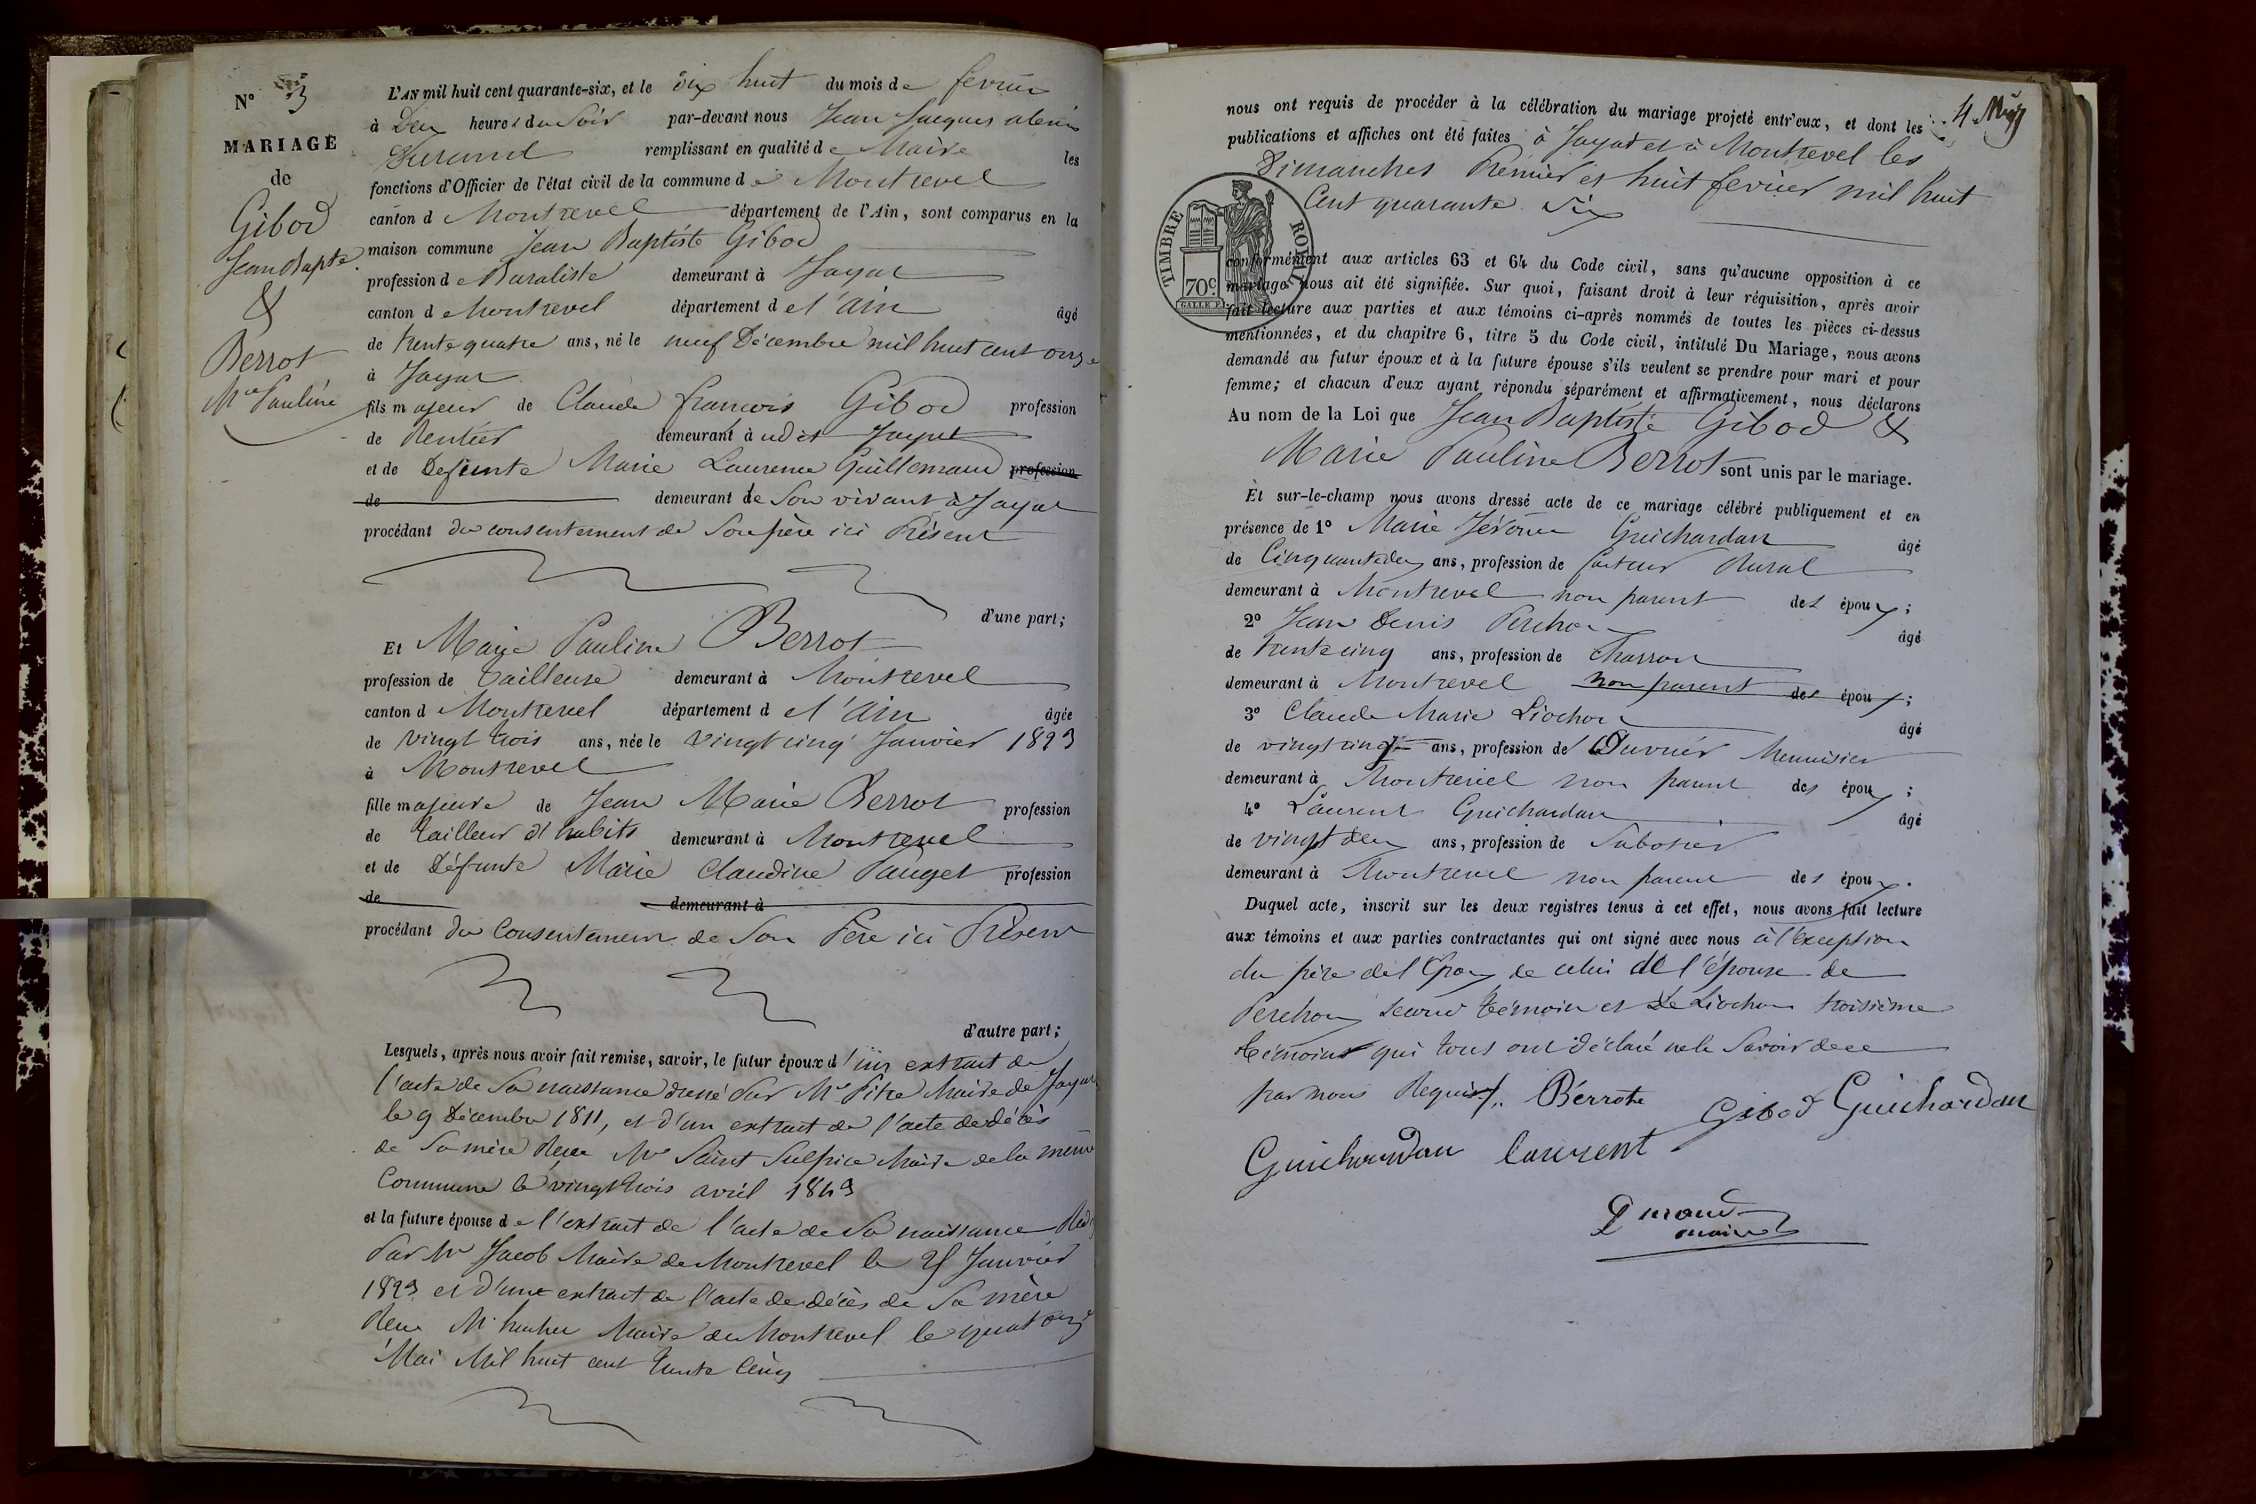 N° 3
MARIAGE
de
Gibod
Jean Bapte
&
Berrot
Mie Pauline
L'AN mil huit cent quarante-six, et le dix huit du mois de février
à Deux heures du Soir par-devant nous Jean Jacques
Durand remplissant en qualité de Maire les
fonctions d'Officier de l'état civil de la commune de Montrevel
canton d Montrevel département de l'Ain, sont comparus en la
maison commune Jean Baptiste Gibod
profession de Buraliste demeurant à Jayat
canton de Montrevel département de l'Ain âgé
de trente quatre ans, né le neuf Décembre mil huit cent onze
à Jayat
fils majeur de Claude françois Gibod profession
de Rentier demeurant à udit Jayat
et de Defunte Marie Laurence Guillemaud profession
de demeurant de Son vivant à Jayat
procédant du consentement de Son père ici Présent
d'une part;
Et Marie Pauline Berrot
profession de Tailleuse demeurant à Montrevel
canton d Montrevel département de l'Ain âgée
de vingt trois ans, née le vingt cinq Janvier 1823
à Montrevel
fille majeure de Jean Marie Berrot profession
de tailleur d'habits demeurant à Montrevel
et de Défunte Marie Claudine Pauget profession
de demeurant à
procédant du Consentement de Son Père ici Présent
d'autre part;
Lesquels, après nous avoir fait remise, savoir, le futur époux d'un extrait de
l'acte de Sa naissance dressé Par Mr Pitre Maire de Jayat
le 9 Décembre 1811, et d'un extrait de l'acte de décès
de Sa mère Reçu Mr Saint Sulpice Maire de la même
Commune le vingt trois avril 1843
et la future épouse de l'extrait de l'acte de Sa naissance
Par Mr Jacob Maire de Montrevel le 25 Janvier
1823 et d'un extrait de l'acte de décès de Sa mère
Reçu Mr Maire de Montrevel le quatorze
Mai Mil huit cent trente Cinq
4. 
nous ont requis de procéder à la célébration du mariage projeté entr'eux, et dont les
publications et affiches ont été faites à Jayat et à Montrevel les
Dimanches Premier et huit fevrier mil huit
Cent quarante Six
TIMBRE ROYAL
70c.
conformément aux articles 63 et 64 du Code civil, sans qu'aucune opposition à ce
mariage nous ait été signifiée. Sur quoi, faisant droit à leur réquisition, après avoir
fait lecture aux parties et aux témoins ci-après nommés de toutes les pièces ci-dessus
mentionnées, et du chapitre 6, titre 5 du Code civil, intitulé Du Mariage, nous avons
demandé au futur époux et à la future épouse s'ils veulent se prendre pour mari et pour
femme; et chacun d'eux ayant répondu séparément et affirmativement, nous déclarons
Au nom de la Loi que Jean Baptiste Gibod &
Marie Pauline Berrot sont unis par le mariage.
Et sur-le-champ nous avons dressé acte de ce mariage célébré publiquement et en
présence de 1° Marie Jérôme Guichardan âgé
de Cinquante deux ans, profession de facteur Rural
demeurant à Montrevel non parent des époux;
2° Jean Denis Perchoux âgé
de trente cinq ans, profession de Charron
demeurant à Montrevel non parent des époux;
3° Claude Marie Liochon âgé
de vingt cinq ans, profession de Ouvrier Menuisier
demeurant à Montrevel non parent des époux;
4° Laurent Guichardan âgé
de vingt deux ans, profession de Sabotier
demeurant à Montrevel non parent des époux.
Duquel acte, inscrit sur les deux registres tenus à cet effet, nous avons fait lecture
aux témoins et aux parties contractantes qui ont signé avec nous à l'exception
du père de l'Époux de celui de l'épouse de
Perchoux second témoin et de Liochon troisième
témoins qui tous ont déclaré ne le Savoir de ce
par nous Requis. Bérrote Gibod Guichardan
Guichardan laurent
Durand
maire